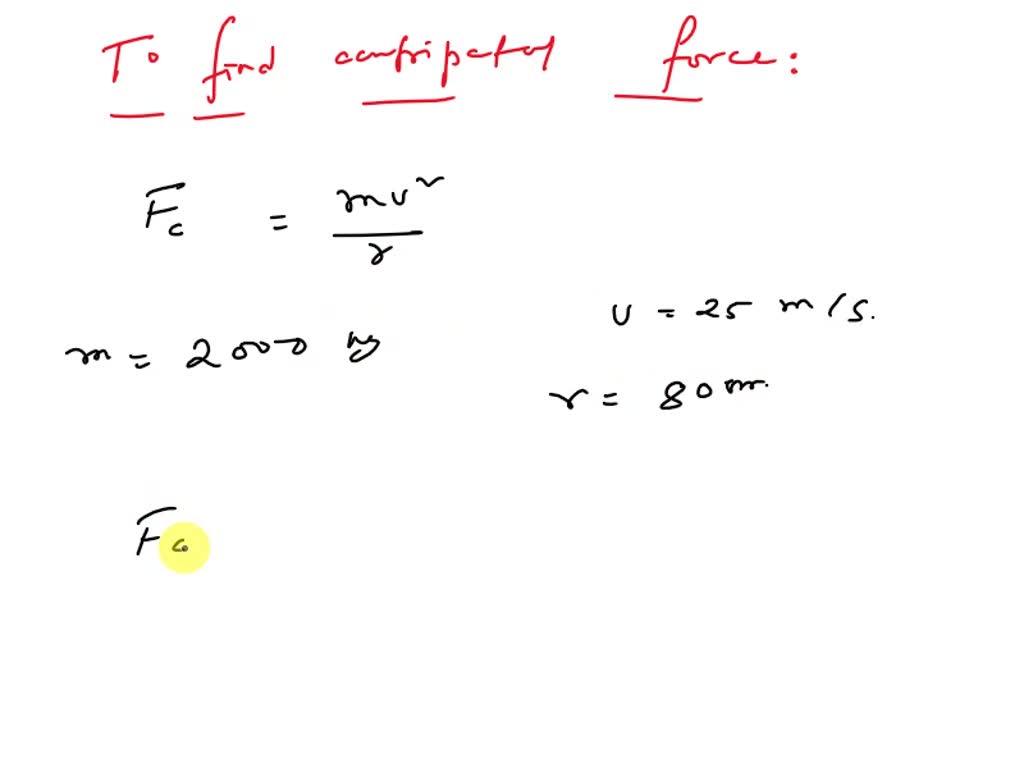 To find centripetal force:
Fc = mv²/r
m = 2000 kg
v = 25 m/s.
r = 80 m.
Fc